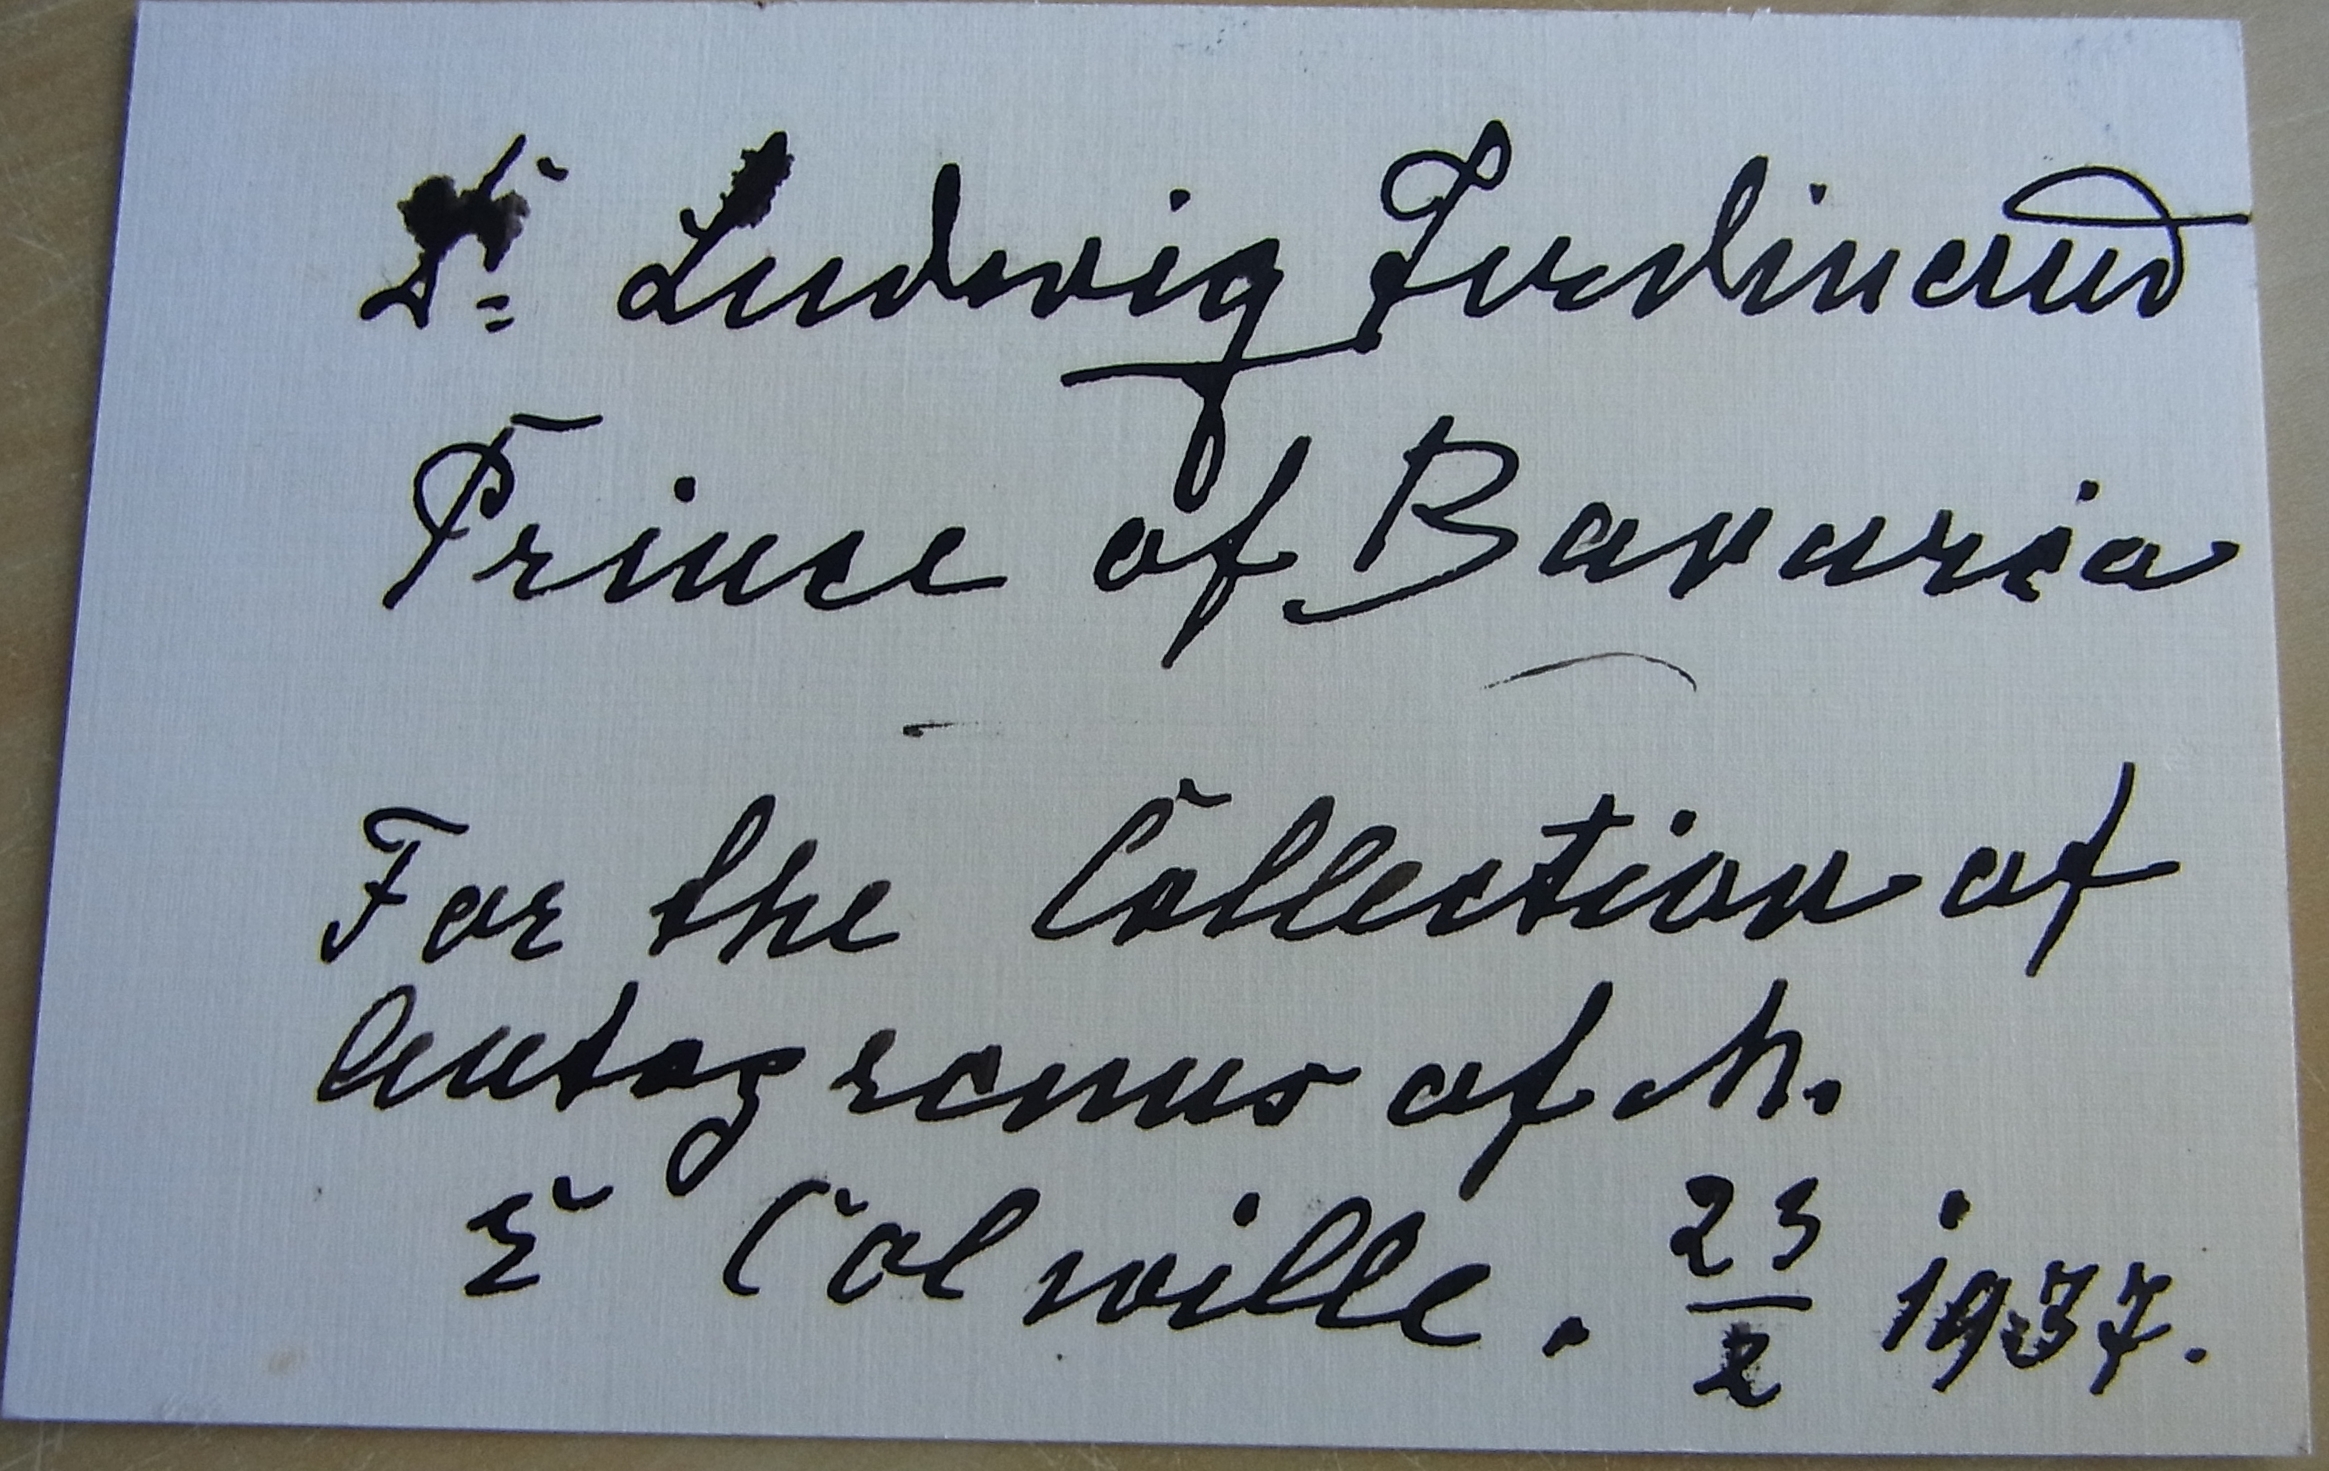 Dr. Ludwig Ferdinand
Prince of Bavaria
For the Collection of
Autograms of M.
E Colville. 23/2 1937.